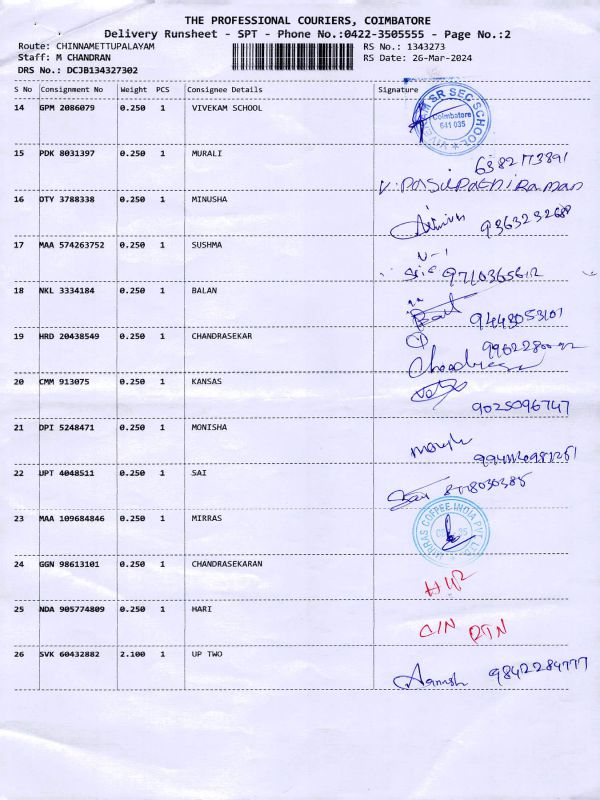 THE PROFESSIONAL COURIERS, COIMBATORE
Delivery Runsheet - SPT - Phone No.:0422-3505555 - Page No.:2
Route: CHINNAMETTUPALAYAM RS No.: 1343273
Staff: M CHANDRAN RS Date: 26-Mar-2024
DRS No.: DCJB134327302
S No Consignment No Weight PCS Consignee Details Signature
14 GPM 2086079 0.250 1 VIVEKAM SCHOOL
SR SEC SCHOOL
Coimbatore
641 035
15 PDK 8031397 0.250 1 MURALI 6382173891
V. Pasupathiraman
16 DTY 3788338 0.250 1 MINUSHA
17 MAA 574263752 0.250 1 SUSHMA
18 NKL 3334184 0.250 1 BALAN 9443053101
19 HRD 20438549 0.250 1 CHANDRASEKAR
20 CMM 913075 0.250 1 KANSAS 9025096747
21 DPI 5248471 0.250 1 MONISHA
22 UPT 4048511 0.250 1 SAI
23 MAA 109684846 0.250 1 MIRRAS
MIRRAS COFFEE INDIA PVT. LTD.
24 GGN 98613101 0.250 1 CHANDRASEKARAN
25 NDA 905774809 0.250 1 HARI C/N RTN
26 SVK 60432882 2.100 1 UP TWO 9842284777